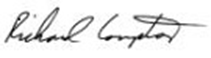 Richard Compton